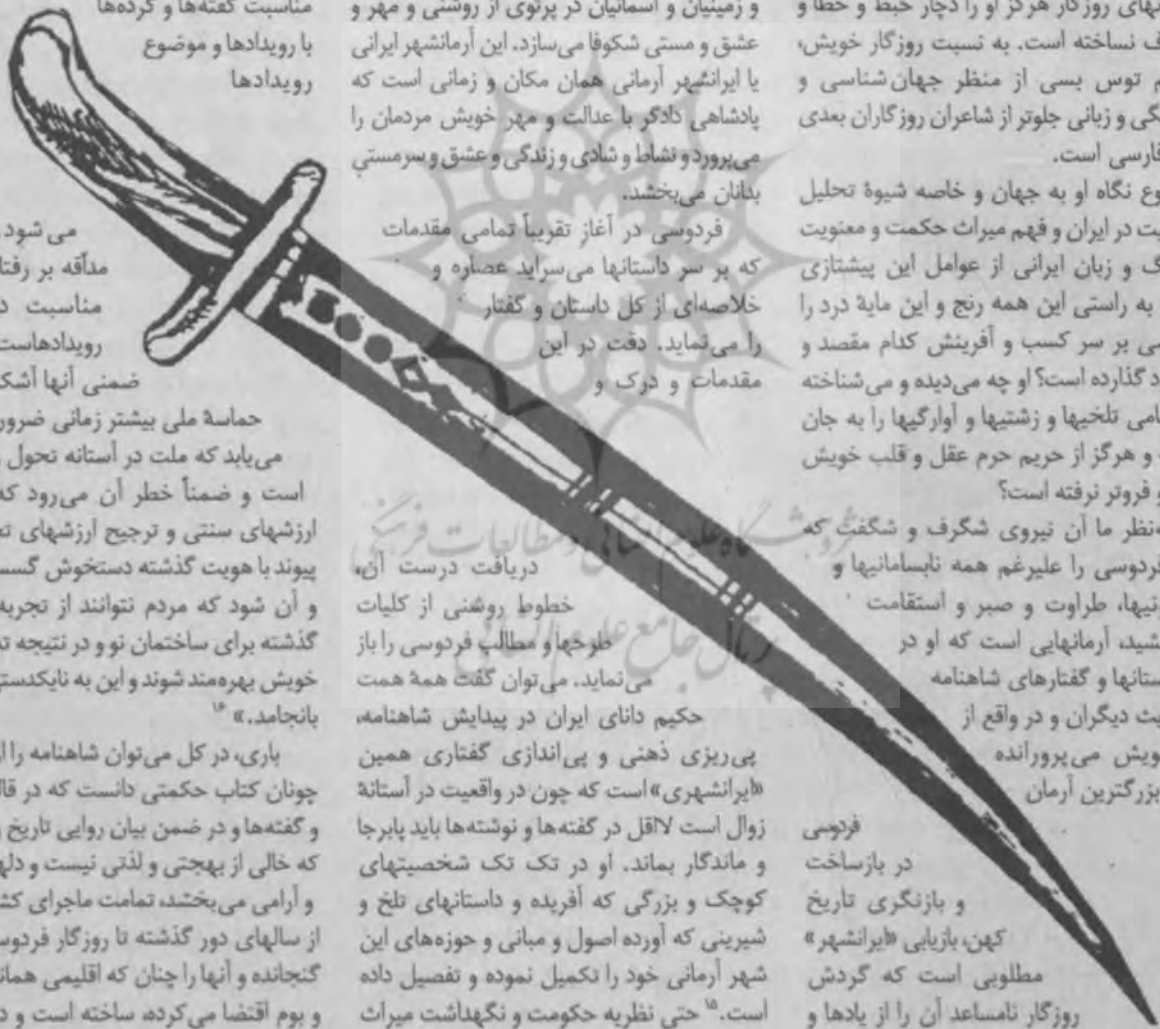 نهای روزگار هرگز او را دچار خبط و خطا و
ف نساخته است. به نسبت روزگار خویش،
م توس بسی از منظر جهان‌شناسی و
گی و زبانی جلوتر از شاعران روزگاران بعدی
فارسی است.
وع نگاه او به جهان و خاصه شیوهٔ تحلیل
یت در ایران و فهم میراث حکمت و معنویت
گ و زبان ایرانی از عوامل این پیشتازی
به راستی این همه رنج و این مایهٔ درد را
سی بر سر کسب و آفرینش کدام مقصد و
د گذارده است؟ او چه می‌دیده و می‌شناخته
امی تلخیها و زشتیها و آوارگیها را به جان
و هرگز از حریم حرم عقل و قلب خویش
و فروتر نرفته است؟
ه‌نظر ما آن نیروی شگرف و شگفت که
فردوسی را علیرغم همه نابسامانیها و
نیها، طراوت و صبر و استقامت
شید، آرمانهایی است که او در
ستانها و گفتارهای شاهنامه
یث دیگران و در واقع از
ویش می‌پرورانده
بزرگترین آرمان
فردوسی
در بازساخت
و بازنگری تاریخ
کهن، بازیابی «ایرانشهر»
مطلوبی است که گردش
روزگار نامساعد آن را از یادها و
و زمینیان و آسمانیان در پرتوی از روشنی و مهر و
عشق و مستی شکوفا می‌سازد. این آرمانشهر ایرانی
یا ایرانشهر آرمانی همان مکان و زمانی است که
پادشاهی دادگر با عدالت و مهر خویش مردمان را
می‌پرورد و نشاط و شادی و زندگی و عشق و سرمستی
بدانان می‌بخشد.
فردوسی در آغاز تقریباً تمامی مقدمات
که بر سر داستانها می‌سراید عصاره و
خلاصه‌ای از کل داستان و گفتار
را می‌نماید. دقت در این
مقدمات و درک و
دریافت درست آن،
خطوط روشنی از کلیات
طرحها و مطالب فردوسی را باز
می‌نماید. می‌توان گفت همهٔ همت
حکیم دانای ایران در پیدایش شاهنامه،
پی‌ریزی ذهنی و پی‌اندازی گفتاری همین
«ایرانشهری» است که چون در واقعیت در آستانهٔ
زوال است لااقل در گفته‌ها و نوشته‌ها باید پابرجا
و ماندگار بماند. او در تک تک شخصیتهای
کوچک و بزرگی که آفریده و داستانهای تلخ و
شیرینی که آورده اصول و مبانی و حوزه‌های این
شهر آرمانی خود را تکمیل نموده و تفصیل داده
است.۱۵ حتی نظریه حکومت و نگهداشت میراث
مناسبت گفته‌ها و کرده‌ها
با رویدادها و موضوع
رویدادها
می‌شود.
مداقه بر رفتا
مناسبت د
رویدادهاست
ضمنی آنها آشک
حماسهٔ ملی بیشتر زمانی ضرور
می‌یابد که ملت در آستانه تحول
است و ضمناً خطر آن می‌رود که
ارزشهای سنتی و ترجیح ارزشهای تح
پیوند با هویت گذشته دستخوش گسس
و آن شود که مردم نتوانند از تجربه
گذشته برای ساختمان نو و در نتیجه تد
خویش بهره‌مند شوند و این به نایکدستی
بانجامد.» ۱۶
باری، در کل می‌توان شاهنامه را از
چونان کتاب حکمتی دانست که در قال
و گفته‌ها و در ضمن بیان روایی تاریخ
که خالی از بهجتی و لذتی نیست و دلها
و آرامی می‌بخشد، تمامت ماجرای کش
از سالهای دور گذشته تا روزگار فردوس
گنجانده و آنها را چنان که اقلیمی همان
و بوم اقتضا می‌کرده، ساخته است و د
پژوهشگاه علوم انسانی و مطالعات فرهنگی
پرتال جامع علوم انسانی